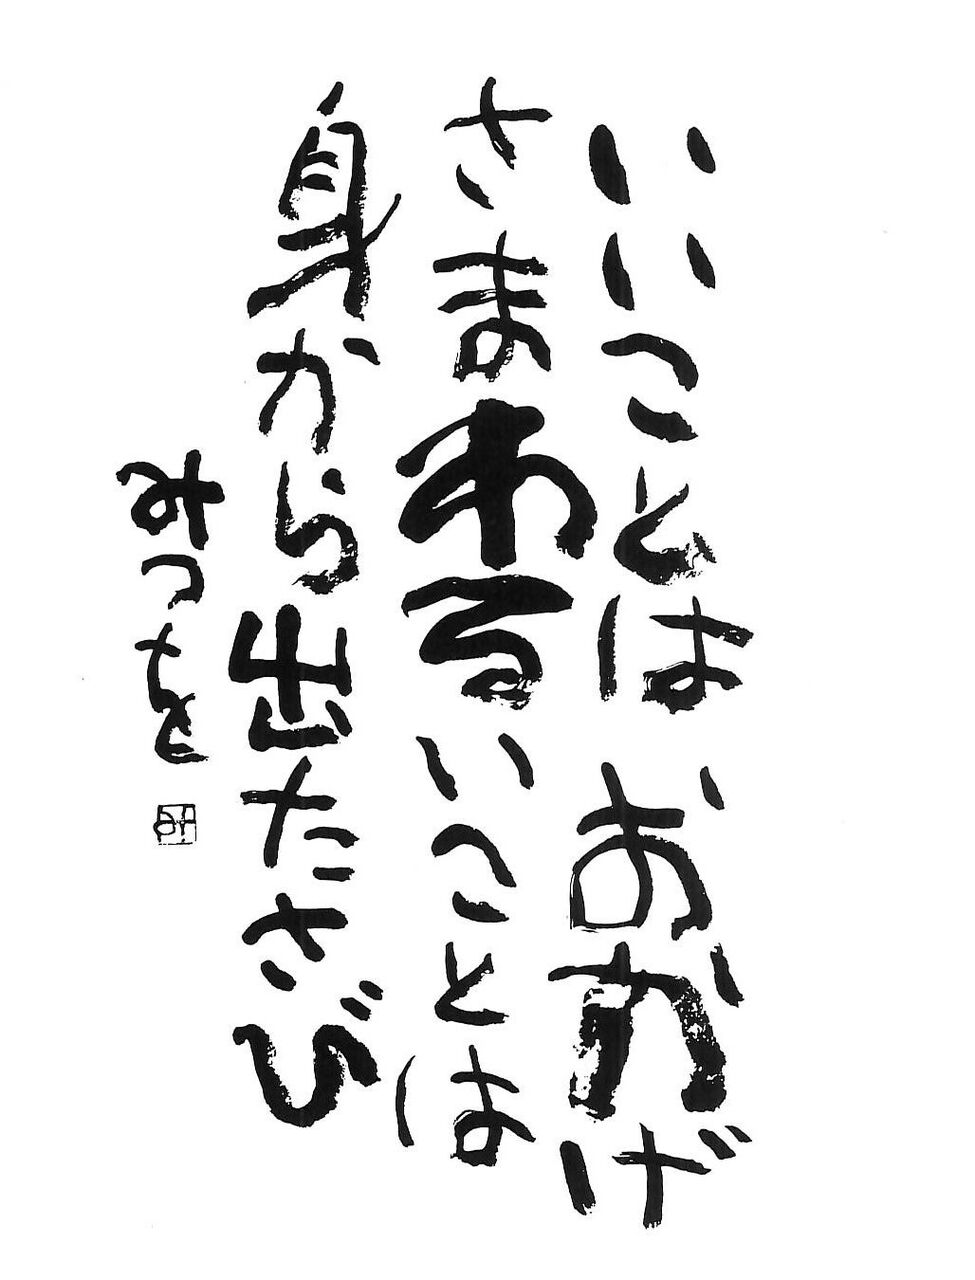 いいことはおかげ
さまわるいことは
身から出たさび
みつを